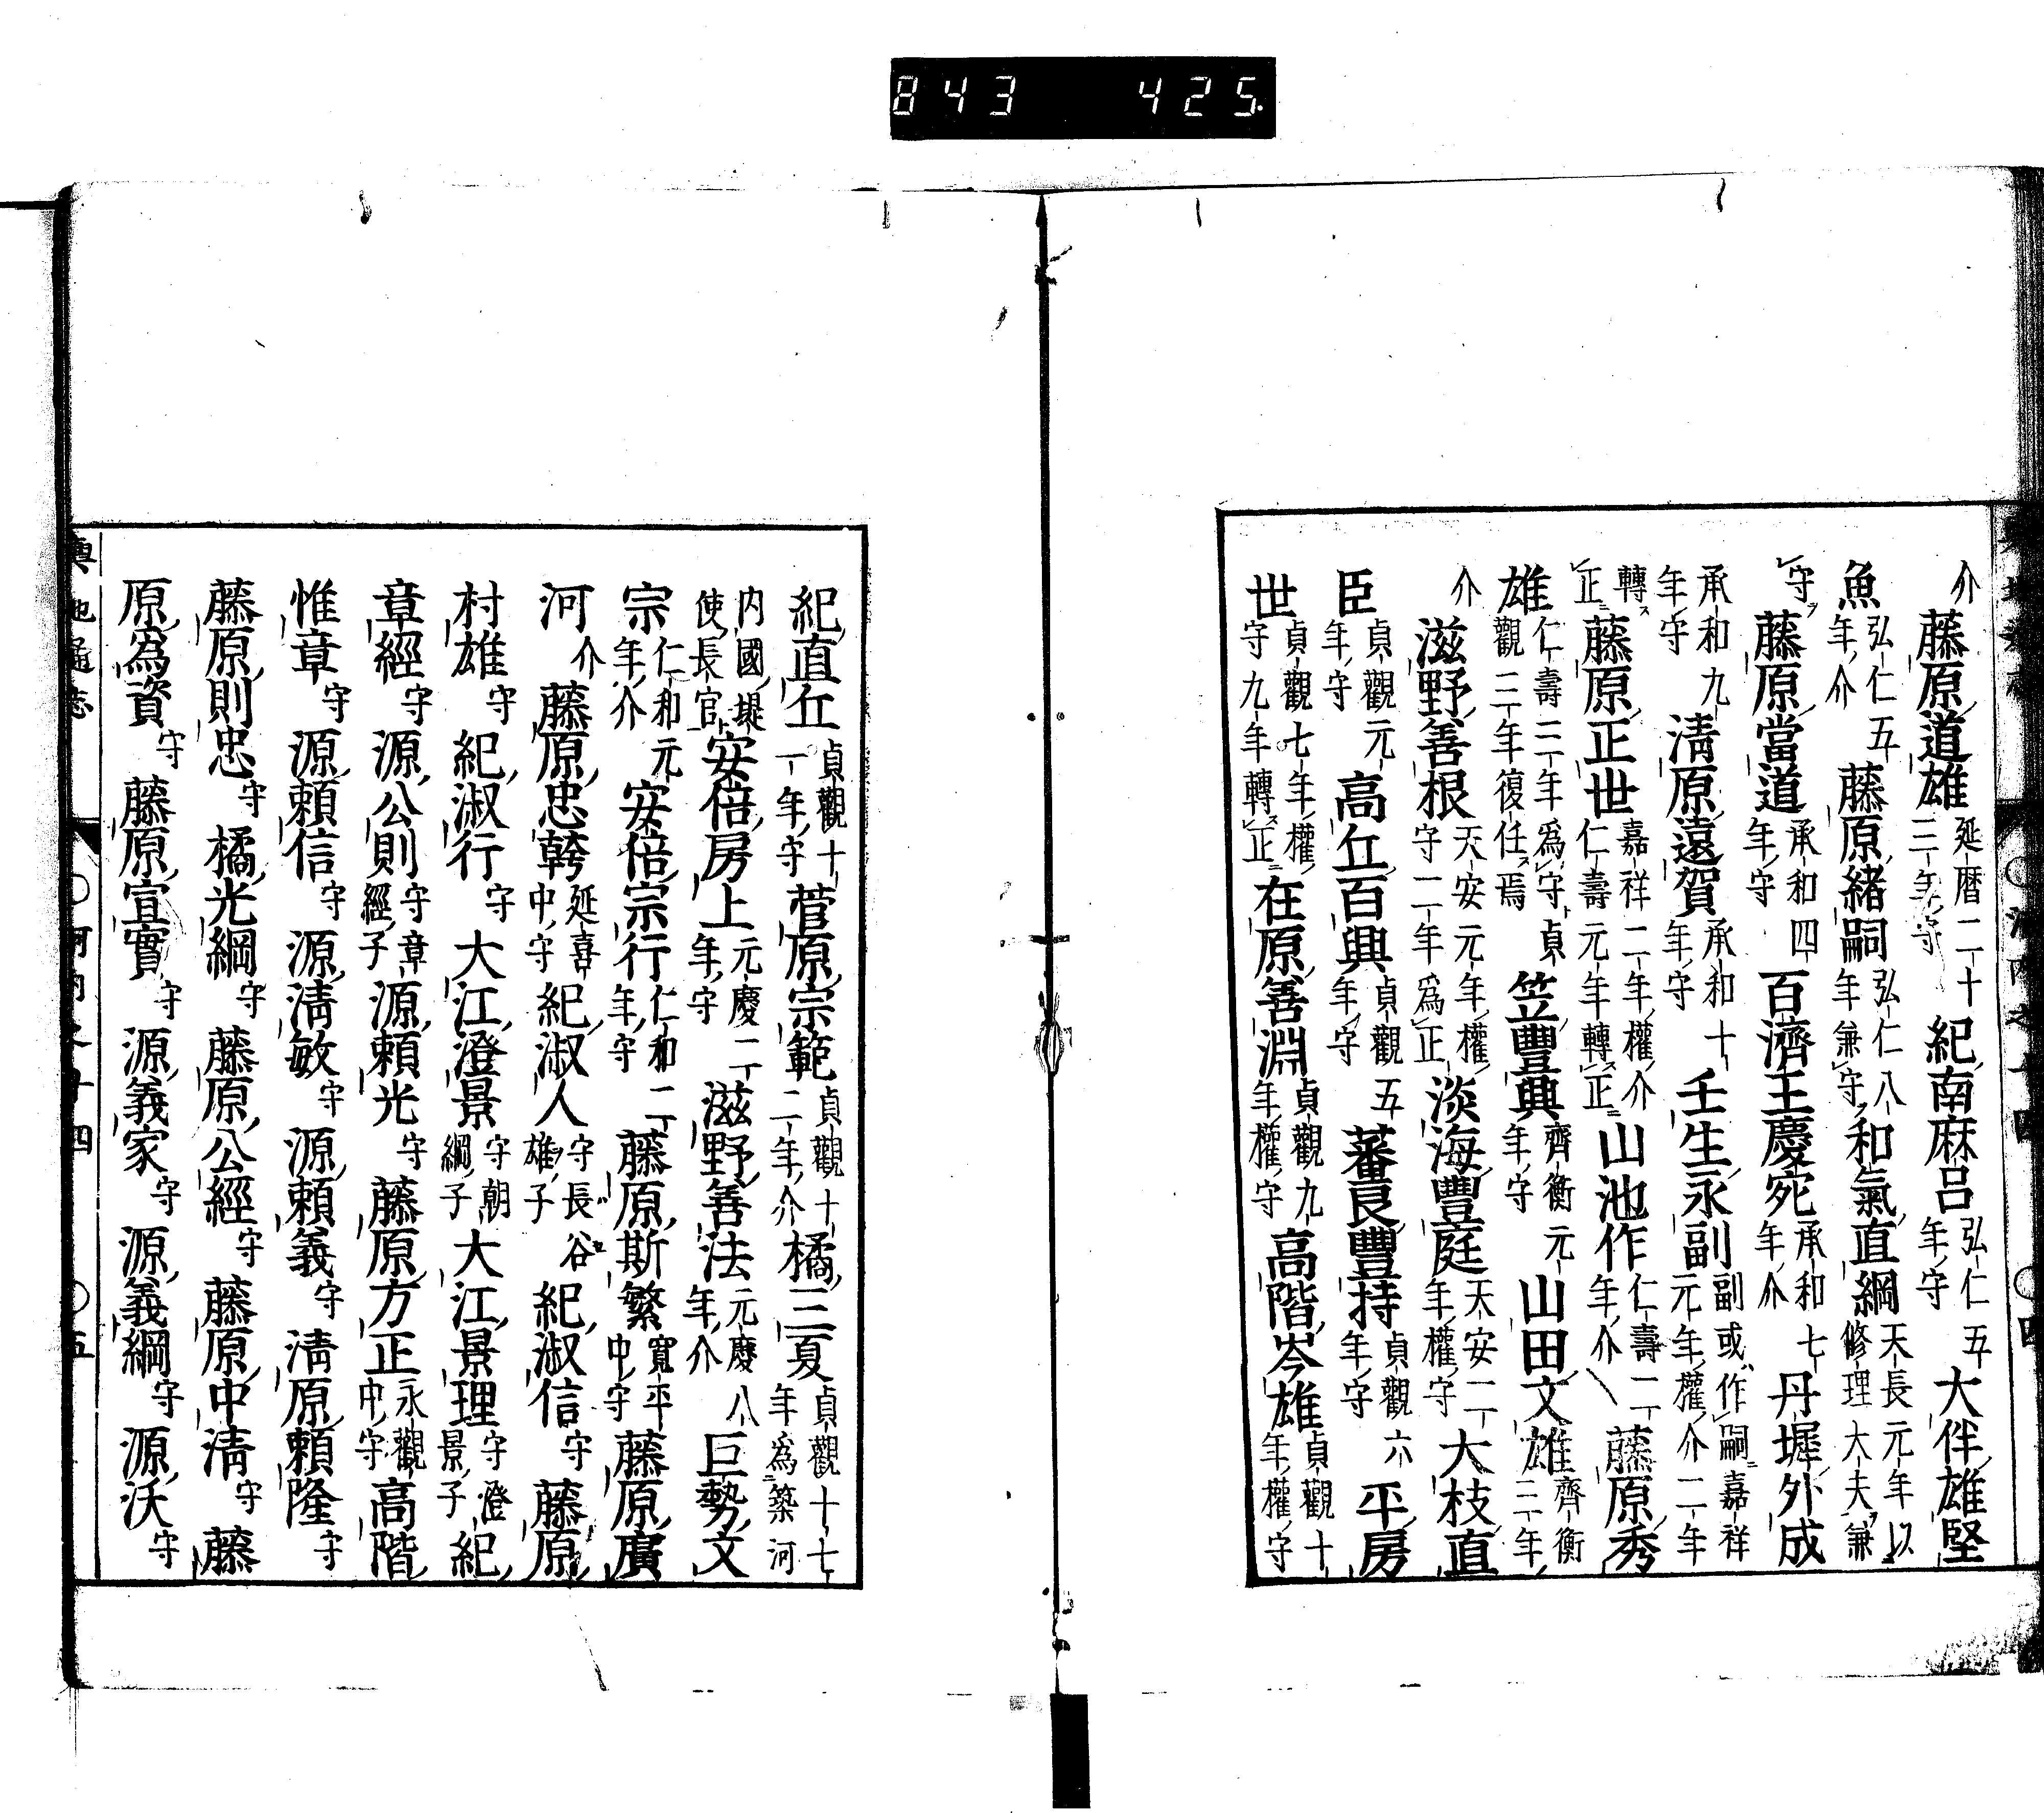 843 425
介藤原道雄延暦二十三年守紀南麻呂弘仁五年守大伴雄堅
魚弘仁五年介藤原緒嗣弘仁八年兼守和氣直綱天長元年以修理大夫兼
守藤原當道承和四年守百濟王慶宛承和七年介丹墀外成
承和九年守清原遠賀承和十年守壬生永副副或作嗣嘉祥元年權介二年
轉正藤原正世嘉祥二年權介仁壽元年轉正山池作仁壽二年介藤原秀
雄仁壽三年爲守貞觀二年復任焉笠豐典齊衡元年守山田文雄齊衡三年
介滋野善根天安元年權守二年爲正淡海豐庭天安二年權守大枝直
臣貞觀元年守高丘百興貞觀五年守蕃良豐持貞觀六年守平房
世貞觀七年權守九年轉正在原善淵貞觀九年權守高階岑雄貞觀十年權守
紀直丘貞觀十一年守菅原宗範貞觀十二年介橘三夏貞觀十七年爲築河
内國堤使長官安倍房上元慶二年守滋野善法元慶八年介巨勢文
宗仁和元年介安倍宗行仁和二年守藤原斯繁寬平中守藤原廣
河介藤原忠幹延喜中守紀淑人守長谷雄子紀淑信守藤原
村雄守紀淑行守大江澄景守朝綱子大江景理守澄景子紀
章經守源公則守章經子源頼光守藤原方正永觀中守高階
惟章守源頼信守源清敏守源頼義守清原頼隆守
藤原則忠守橘光綱守藤原公經守藤原中清守藤
原爲資守藤原宣實守源義家守源義綱守源沃守
輿地通志 ○河内之十四 ○五